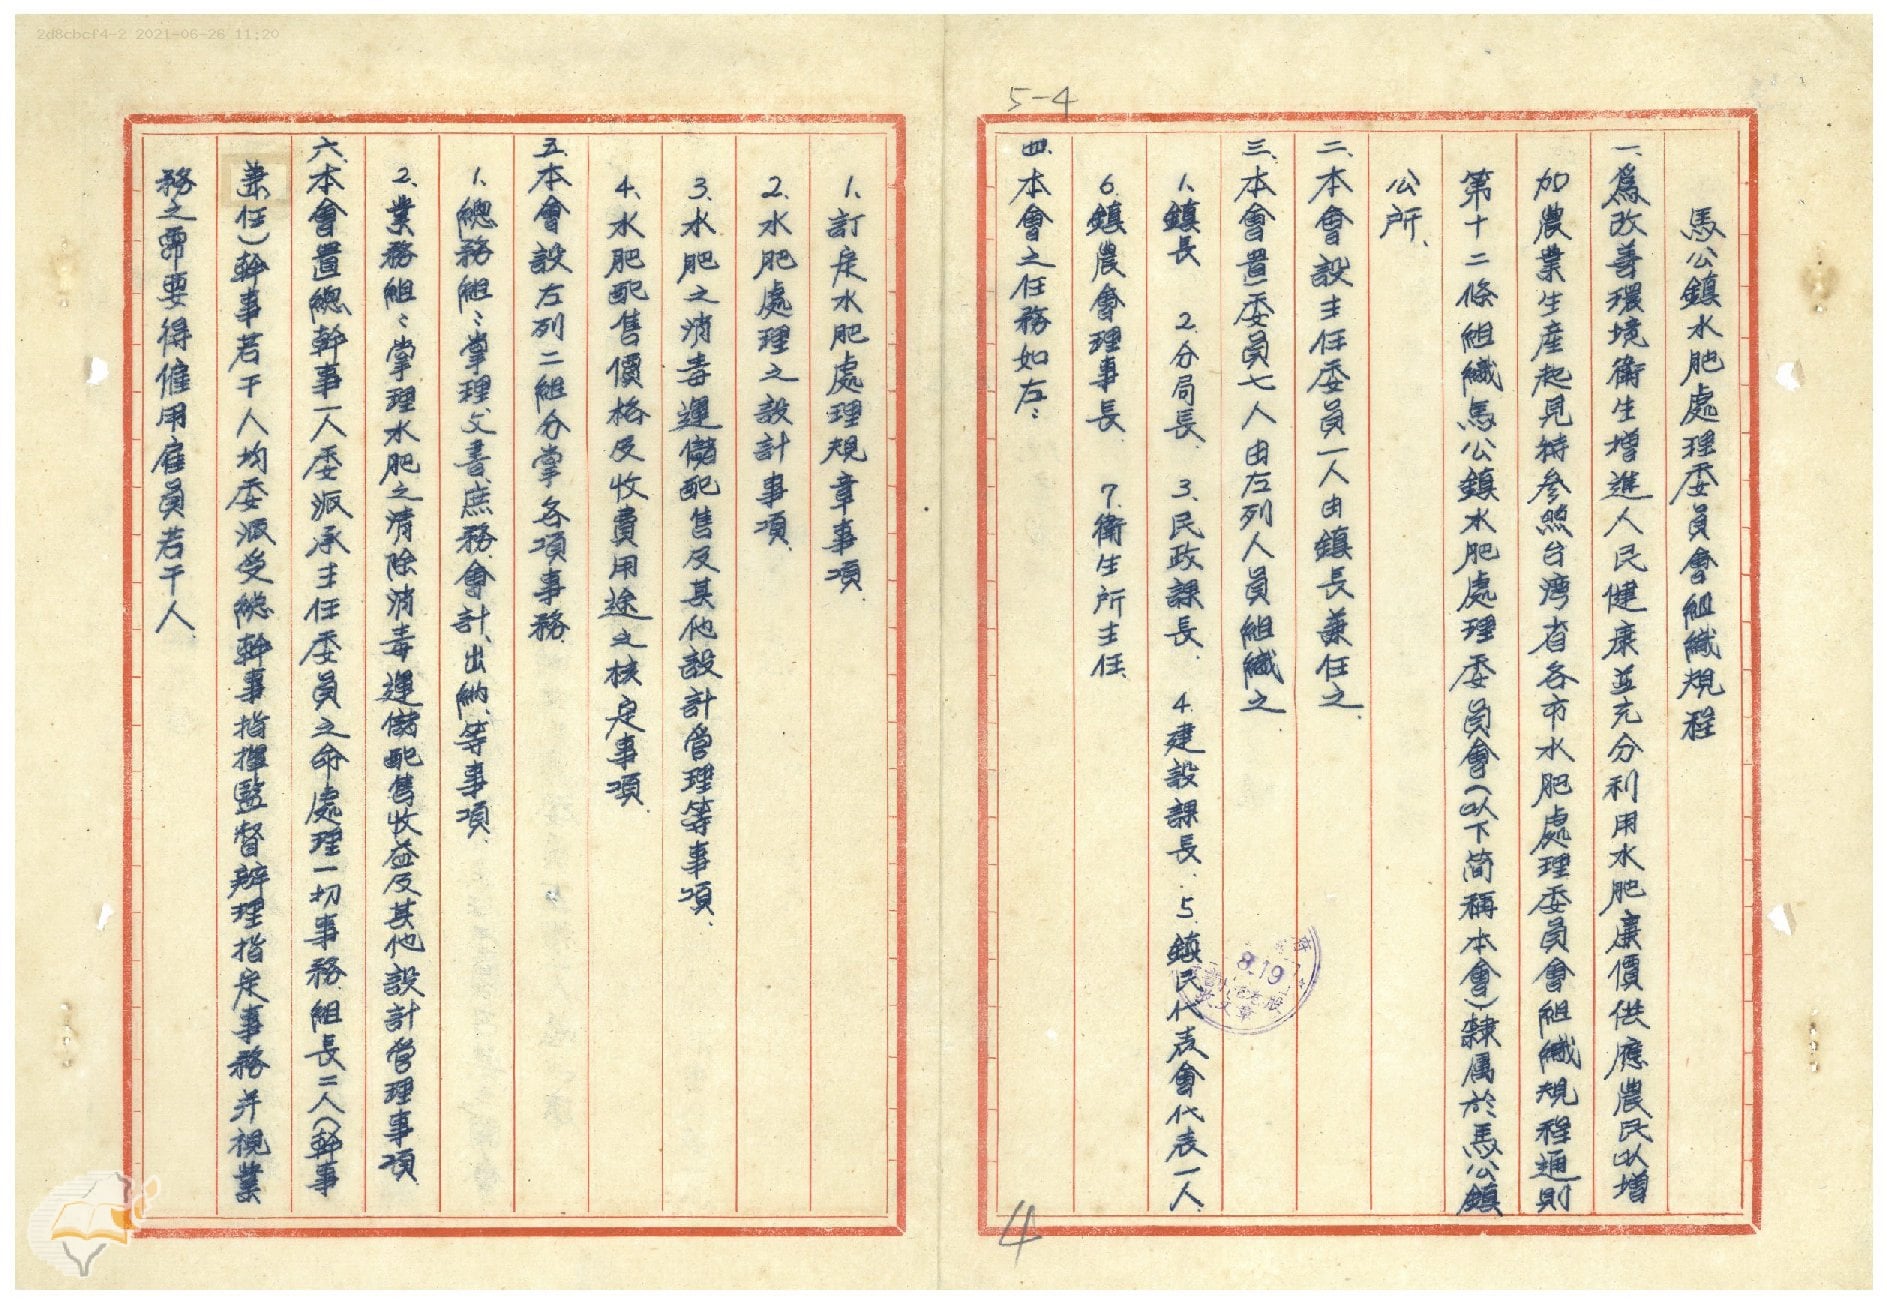 2d8cbcf4-2 2021-06-26 11:20
5-4
馬公鎮水肥處理委員會組織規程
一、爲改善環境衛生增進人民健康並充分利用水肥廉價供應農民以增
加農業生產起見特參照台湾省各市水肥處理委員會組織規程通則
第十二條組織馬公鎮水肥處理委員會(以下简稱本會)隸属於馬公鎮
公所、
二、本會設主任委員一人由鎮長兼任之、
三、本會置委員七人由左列人員組織之
1、鎮長 2、分局長、 3、民政課長、 4、建設課長、 5、鎮民代表會代表一人、
6、鎮農會理事長、 7、衛生所主任、
四、本會之任務如左:
8.19
4
1、訂定水肥處理規章事項、
2、水肥處理之設計事項、
3、水肥之消毒運儲配售及其他設計管理等事項、
4、水肥配售價格及收費用途之核定事項、
五、本會設左列二組分掌各項事務、
1、總務組:掌理文書、庶務、會計、出納、等事項、
2、業務組:掌理水肥之清除消毒運儲配售收益及其他設計管理事項、
六、本會置總幹事一人委派承主任委員之命處理一切事務、組長二人(幹事
兼任)幹事若干人均委派受總幹事指揮監督辦理指定事務并視業
務之需要得僱用雇員若干人、